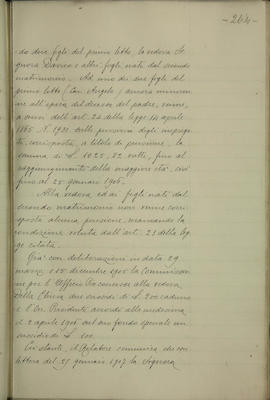 - 264 -
do due figli del primo letto, la vedova Si-
gnora Davico e altri figli nati dal secondo
matrimonio. Ad uno dei due figli del
primo letto (Can. Angelo) ancora minoren-
ne all'epoca del decesso del padre, venne,
a norma dell'art. 22 della legge 14 aprile
1865 N. 1731 sulle pensioni degli impiega-
ti, corrisposta, a titolo di pensione, la
somma di L. 1022,82 nette, fino al
raggiungimento della maggiore età, cioè
fino al 25 gennaio 1906.
Alla vedova ed ai figli nati dal
secondo matrimonio non venne corri-
sposta alcuna pensione, mancando la
condizione voluta dall'art. 23 della leg-
ge citata.
Già con deliberazioni in data 29
marzo e 15 dicembre 1905 la Commissio-
ne per l'Ufficio concesse alla vedova
della Chiesa due sussidi di L. 200 caduno
e l'On. Presidente accordò alla medesima
il 2 aprile 1906 sul suo fondo speciale un
sussidio di L. 100.
Ciò stante, il Relatore comunica che con
lettera del 27 gennaio 1907 la Signora